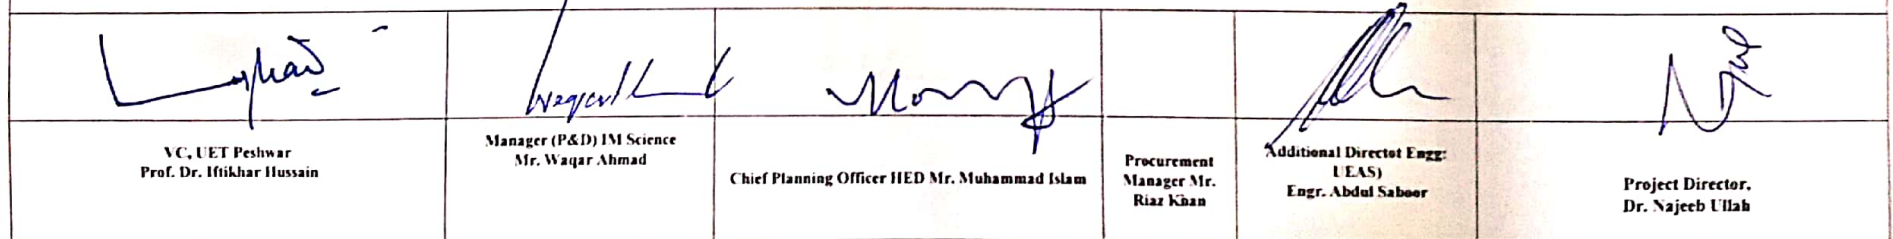 VC, UET Peshwar
Prof. Dr. Iftikhar Hussain
Manager (P&D) IM Science
Mr. Waqar Ahmad
Chief Planning Officer HED Mr. Muhammad Islam
Procurement
Manager Mr.
Riaz Khan
Additional Directot Engg:
UEAS)
Engr. Abdul Saboor
Project Director,
Dr. Najeeb Ullah